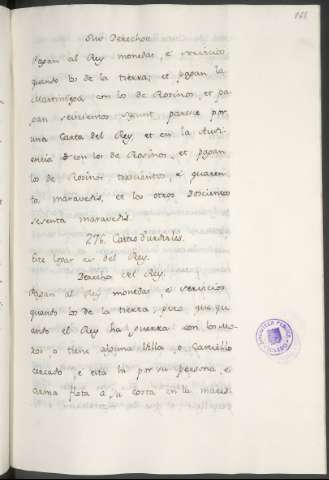 Sus Derechos.
Pagan al Rey monedas, è servicios
quanto los de la tierra; et pagan la
Martiniega con los de Rosinos, et pa
gan seiscientos segunt parece por
una Carta del Rey et en la Aufi
encia con los de Rosinos, et pagan
los de Rosinos trescientos è quaren
ta maravedis, et los otros doscientos
sesenta maravedis.
276. Castro
Este logar es del Rey.
Derechos del Rey.
Pagan al Rey monedas, è servicios
quanto los de la tierra, pero que qu
ando el Rey ha guerra con los Mo
ros o tiene alguna Villa, o Castillo
cercado, e esta hi por su persona, e
arma flota a su costa en la mared